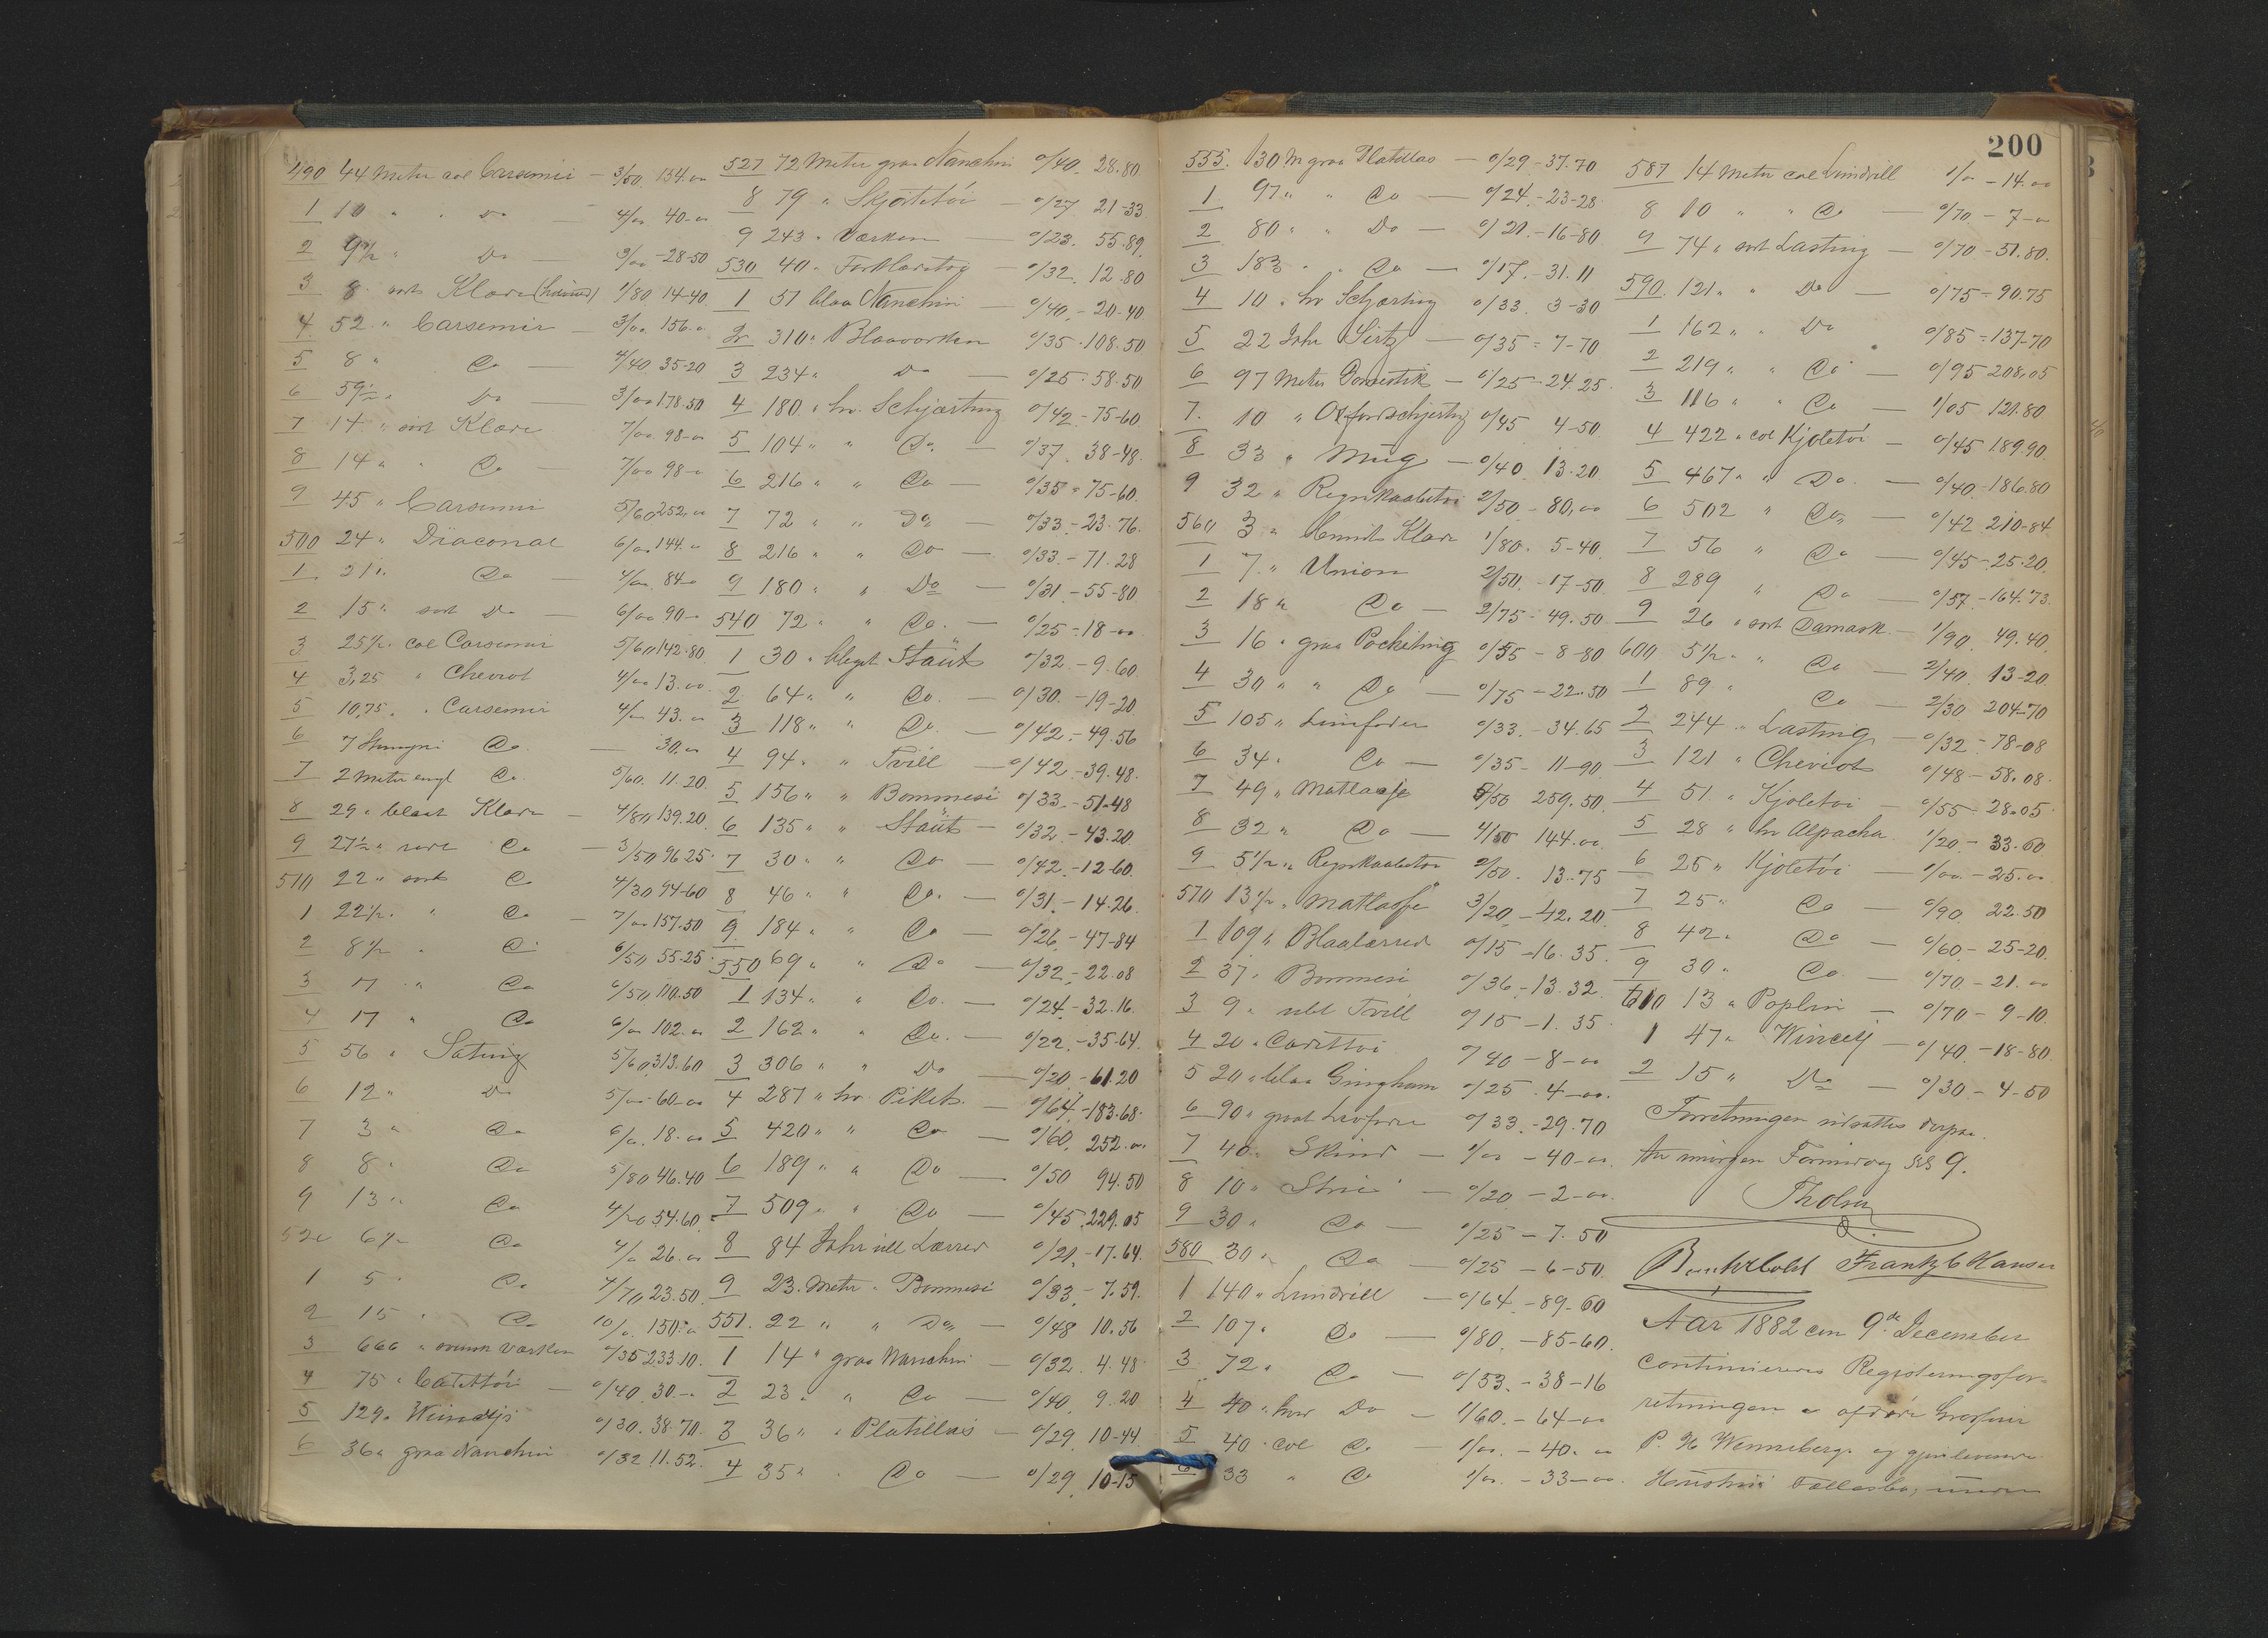 490 44 Meter col Carsemir — 3/50. 154.00
1 10 " " Do — 4/00 40-00
2 9½ " Do — 3/00 -28-50
3 8 " sort Klæde 1/80. 14-40.
4 52 " Carsemir — 3/00. 156.00
5 8 " Do — 4/40. 35-20
6 59½ " Do — 3/00 178.50
7 14 " sort Klæde 7/00 98-00
8 14 " " Do — 7/00 98-00
9 45 " Carsemir 5/60 252.00
500 24 " Diaconal 6/00 144.00
1 21 " Do — 4/00 84-00
2 15 " sort Do — 6/00 90-00
3 25½ " col Carsemir 5/60 142.80
4 3,25 " Cheviot 4/00 13.00
5 10,75 " Carsemir 4/00 43.00
6 7 Do. — 30.00
7 2 Meter engl Do. 5/60. 11.20.
8 29 " blaat Klæde — 4/80 139.20.
9 27½ " Do — 3/50 96 25.
510 22 " sort Do 4/30 94-60
1 22½ " " Do — 7/00 157.50
2 8½ " Do 6/50 55.25.
3 17 " Do 6/50 110.50
4 17 " Do 6/00 102.00
5 56 " Satting 5/60 313.60
6 12 " Do 5/00 60-00
7 3 " Do 6/00. 18.00
8 8 " Do 5/80 46.40
9 13 " Do 4/20 54.60.
520 6½ " Do 4/00 26.00
1 5 " Do 4/70 23.50.
2 15 " Do 10/00. 150.00
3 666 " Værken 0/35 233.10.
4 75 " — 0/40. 30.-00
5 129 " 0/30. 38.70.
6 36 " graa Nanchin 0/32 11.52.
527 72 Meter graa Nanchin 0/40. 28.80
8 79 " Skjøtetöi — 0/27 21-33.
9 243 " Værken — 0/23. 55.89.
530 40 " — 0/32. 12.80
1 51 blaa Nanchin — 0/40. -20-40
2 310 " Blaaværken 0/35 -108.50
3 234 " Do — 0/25 - 58.50
4 180 " hv. Schjærting 0/42 -75-60
5 104 " " Do — 0/37. 38-48.
6 216 " " Do — 0/35 - 75-60.
7 72 " " Do — 0/33. -23.76.
8 216 " " Do — 0/33. -71.28
9 180 " " Do — 0/31. -55-80
540 72 " " Do. — 0/25 -18-00
1 30 " bleget Stout 0/32. - 9.60.
2 64 " " Do. — 0/30. -19-20
3 118 " " Do. — 0/42. -49.56
4 94 " " Tvill — 0/42. -39.48.
5 156 " " Bommesi 0/33. -51-48
6 135 " " Stout — 0/32 -43.20
7 30 " " Do — 0/42. -12-60.
8 46 " " Do. — 0/31. -14.26.
9 184 " " Do — 0/26. -47-84
550 69 " " Do — 0/32. -22.08
1 134 " " Do. — 0/24. -32.16.
2 162 " " Do. — 0/22. -35-64.
3 306 " " Do — 0/20. -61.20
4 287 " hv. Pikets. — 0/64. -183.68.
5 420 " " Do — 0/60. 252.00
6 189 " " Do — 0/50 94.50
7 509 " " Do — 0/45. 229.05
8 84 Lærred 0/21. -17.64.
9 23 Meter " Bommesi 0/33. - 7.59.
551. 22 " " Do — 0/48 10.56
1 14 " graa Nanchin — 0/32. 4.48
2 23 " " Do — 0/40. 9.20
3 36 " " Platillas — 0/29. 10-44
4 35 " " Do — 0/29. 10-15
200
555. 130 M graa Platillas — 0/29 - 37.70
1 97 " " Do — 0/24. -23-28
2 80 " " Do — 0/21. -16-80
3 183 " " Do — 0/17. -31.11
4 10 " hv Schjærting 0/33. 3-30
5 22 Sirtz — 0/35 - 7-70
6 97 Meter Domestik — 0/25 - 24.25.
7. 10 " Oxfordschjerting 0/45 4-50
8 33 " Mug — 0/40. 13.20
9 32 " Regnkaabetöi 2/50 - 80.00
560 3 " Klæde 1/80. 5-40.
1 7 " Union 2/50. -17-50.
2 18 " Do — 2/75 - 49.50
3 16 " graa Pocketing 0/55 - 8-80
4 30 " " Do — 0/75 -22.50
5 105 " 0/33. -34.65
6 34 " Do — 0/35 - 11-90
7 49 " Matlasse 259.50.
8 32 " Do — 4/50 144.00.
9 5½ " Regnkaabetöi 2/50. 13.75
570 13½ " Matlasse 3/20 - 42.20.
1 109 " Blaalærred 0/15 -16.35.
2 37 " Bommesi 0/36 -13.32.
3 9 " ubl Tvill 0/15 -1.35.
4 20 " 0/40 -8-00
5 20 " blaa Gingham 0/25. 4-00.
6 90 " graat 0/33. -29.70
7 40 " Skind — 1/00 -40-00.
8 10 " Strie — 0/20 -2-00.
9 30 " Do — 0/25 -7.50
580 30 " Do — 0/25 -6-50.
1 140 " — 0/64. -89.60
2 107 " Do — 0/80. -85-60.
3 72 " Do — 0/53. -38-16
4 40 " Do — 1/60. -64-00
5 40 " col Do — 1/00. -40.00
6 33 " Do 1/00. -33-00.
587 14 Meter col 1/00 -14.00
8 10 " " Do — 0/70. -7-00
9 74 " sort Lasting — 0/70 -51.80.
590. 121 " " Do — 0/75 -90.75
1 162 " " Do 0/85 -137-70
2 219 " " Do — 0/95 208.05
3 116 " " Do — 1/05 121.80
4 422 " col Kjoletöi — 0/45 189.90.
5 467 " " Do. — 0/40. -186.80
6 502 " Do — 0/42. 210-84
7 56 " Do — 0/45 -25.20.
8 289 " Do — 0/57. -164.73.
9 26 " sort Damask — 1/90. 49.40.
600 5½ " " Do — 2/40. 13-20
1 89 " Do — 2/30 204-70
2 244 " Lasting — 0/32 - 78-08
3 121 " Cheviot 0/48 - 58.08.
4 51 " Kjoletöi — 0/55 - 28.05.
5 28 " hv Alpacha 1/20. - 33.60
6 25 " Kjoletöi — 1/00 - 25.00
7 25 " Do — 0/90 22.50
8 42 " Do — 0/60 - 25-20.
9 30 " Do — 0/70. -21.00
610 13 " Poplin — 0/70 - 9-10.
1 47 " Wincey — 0/40. -18-80.
2 15 " Do — 0/30 - 4-50
Forretningen udsattes derpaa
til imorgen Formiddag Kl 9.
Tholsen
Frantz C Hansen
Aar 1882 den 9de December
continueredes Registeringsfor-
retningen i afdøde
P. H. Wenneberg og gjenlevende
Hustrus Fællesbo,